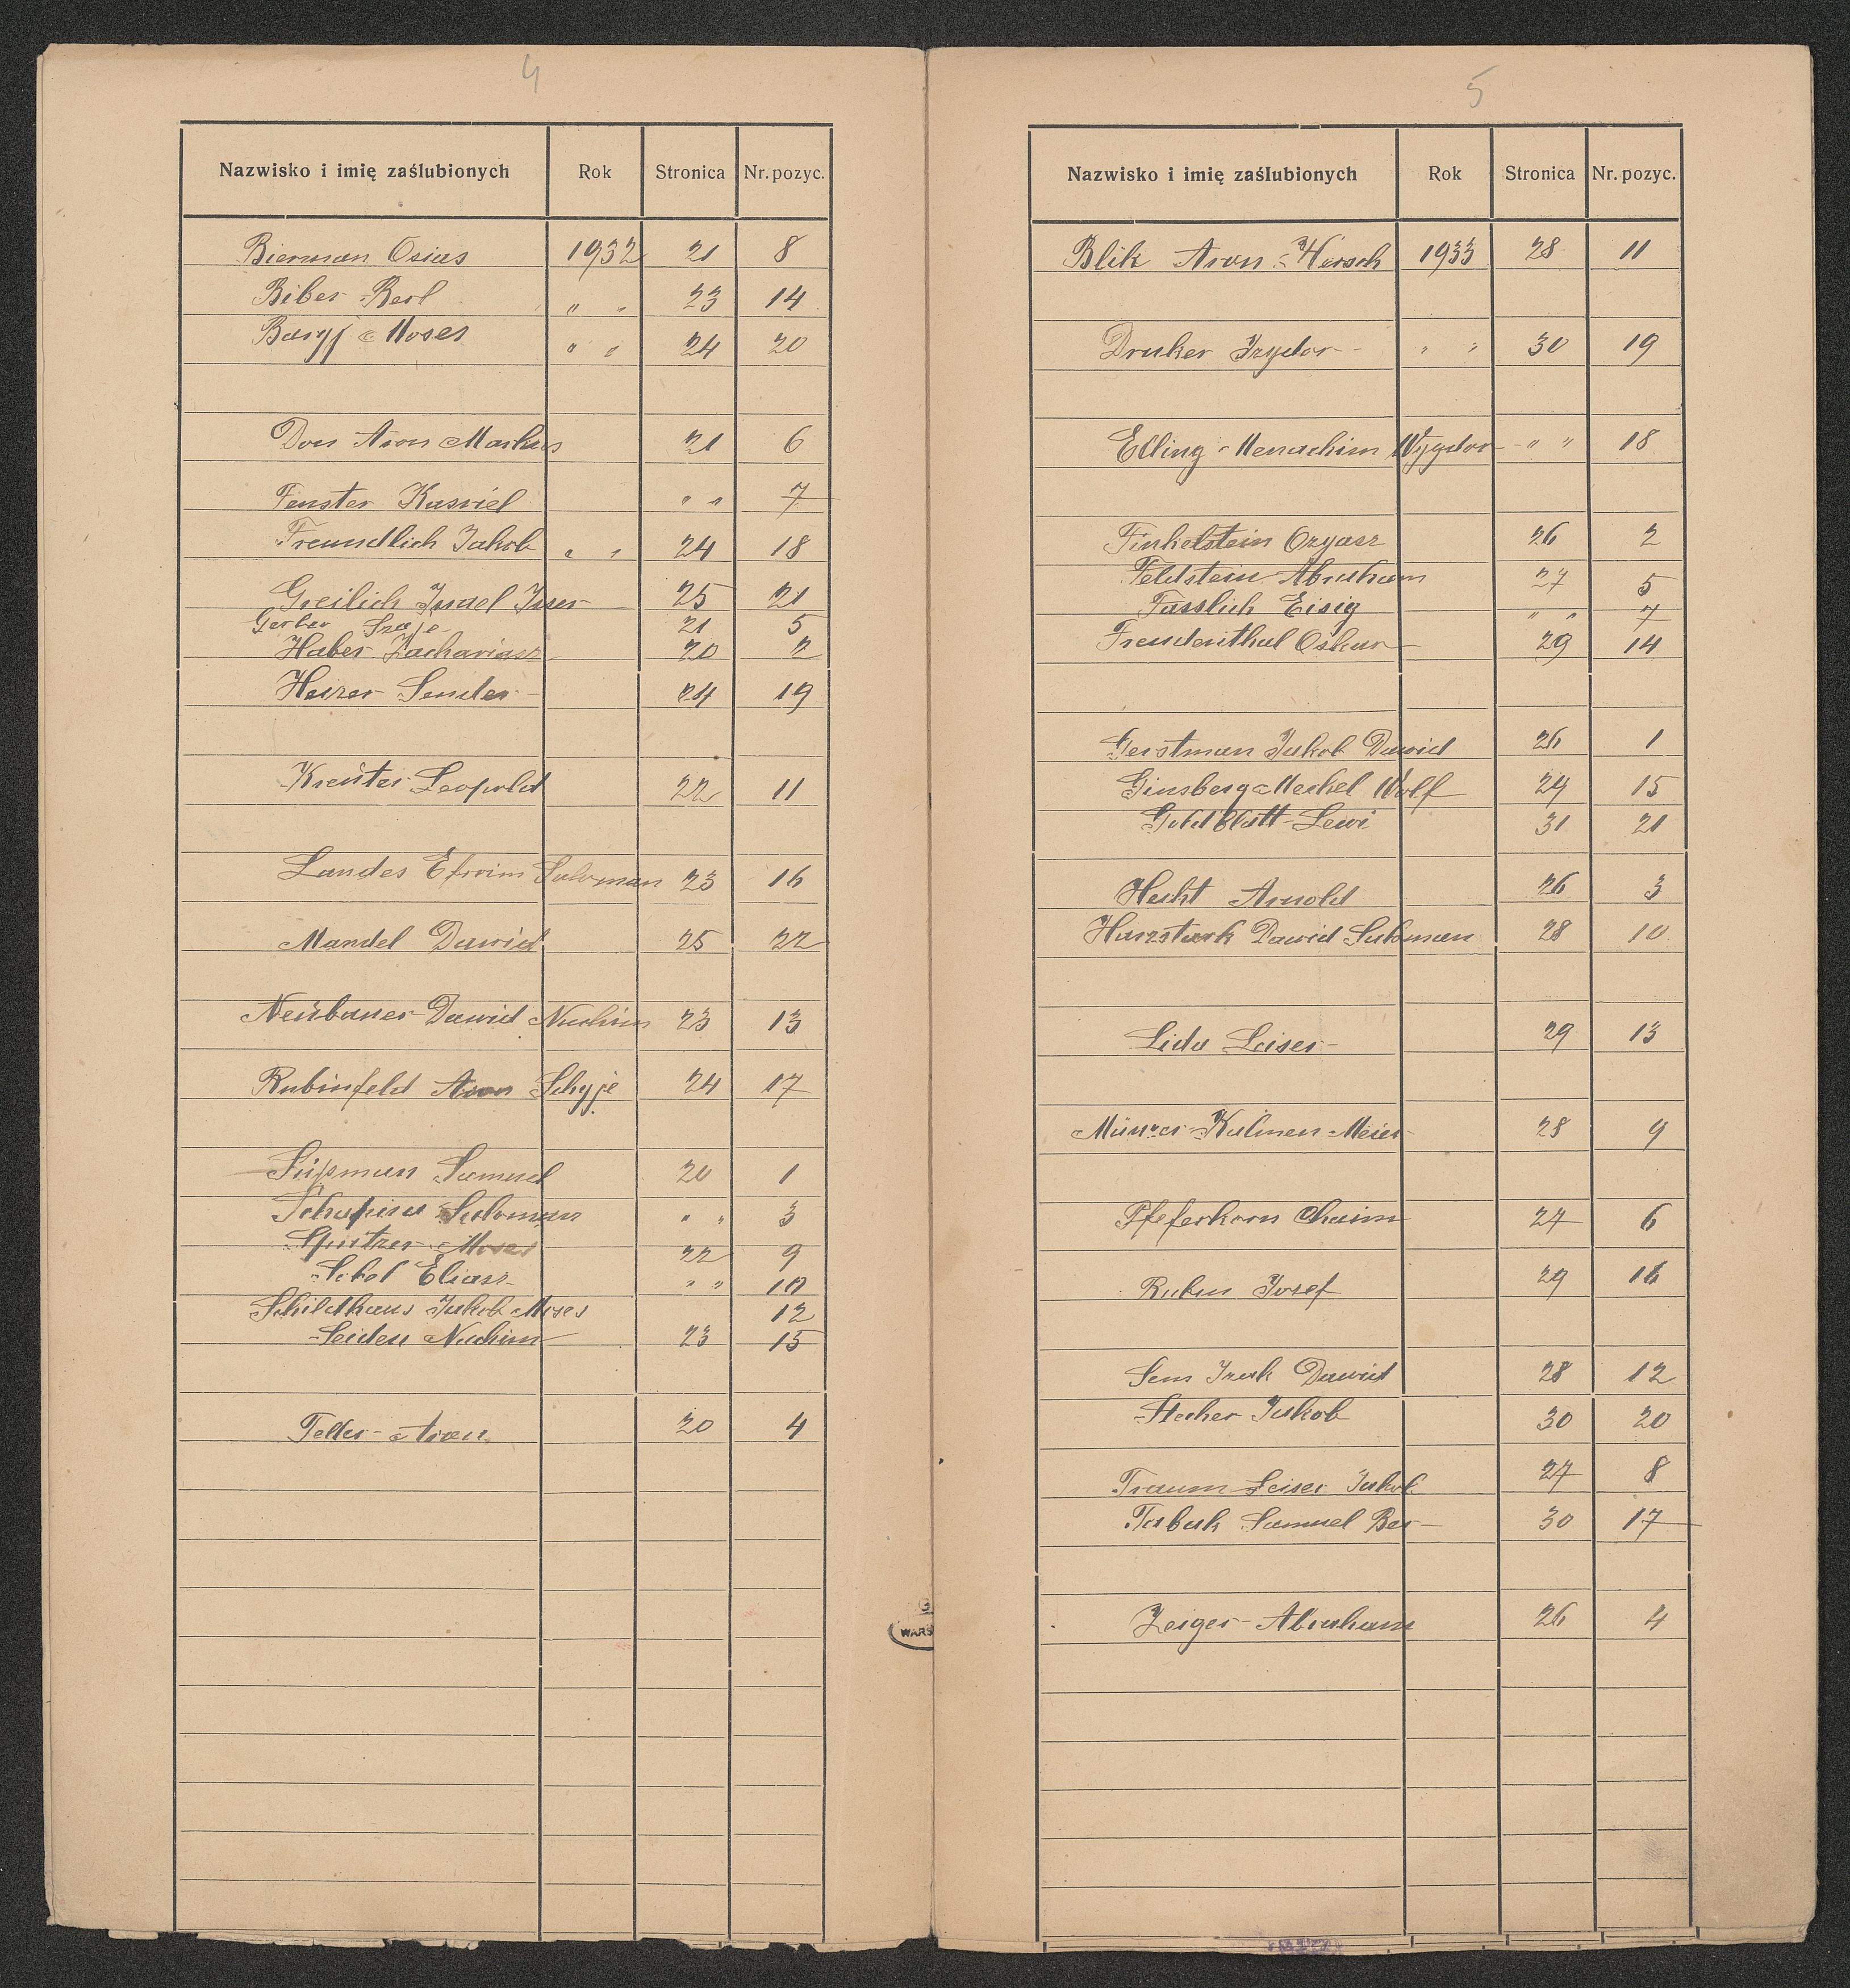 4
Nazwisko i imię zaślubionych Rok Stronica Nr. pozyc.
Bierman Osias 1932 21 8
Biber Berl " " 23 14
Moses " " 24 20
Don Aron Markus 21 6
Fenster Kasriel " " 7
Freundlich Jakob " " 24 18
Greilich Israel Isser 25 21
Gerber 21 5
Haber Zachariasz 20 2
Heizer Sender 24 19
Kreüter Leopold 22 11
Landes Efroim Saloman 23 16
Mandel Dawid 25 22
Neübauer Dawid Nuchim 23 13
Rubinfeld Aron Schyje 24 17
Süßman Samuel 20 1
Schapira Saloman " " 3
Spitzer Moses 22 9
Sobol Eliasz " " 10
Schildhaus Jakob Moses 12
Seiden Nuchim 23 15
Teller Aron 20 4
5
Nazwisko i imię zaślubionych Rok Stronica Nr. pozyc.
Blik Aron Hersch 1933 28 11
Druker Izydor " " 30 19
Edling Menachim Wygdor " " 18
Finkelstein Ozyasz 26 2
Feldstein Abraham 27 5
Fasslich Eisig " " 7
Freudenthal Oskar 29 14
Gerstman Jakob Dawid 26 1
Ginsberg Mechel Wolf 29 15
Goldblatt Lewi 31 21
Hecht Arnold 26 3
Harzstark Dawid Saloman 28 10
Lida Leiser 29 13
Münzer Kalmen Meier 28 9
Pfeferkorn Chaim 27 6
Ruben Josef 29 16
Sem Izak Dawid 28 12
Stecher Jakob 30 20
Traum Leiser Jakob 27 8
Tabak Samuel Ber 30 17
Zeiger Abraham 26 4
WARS